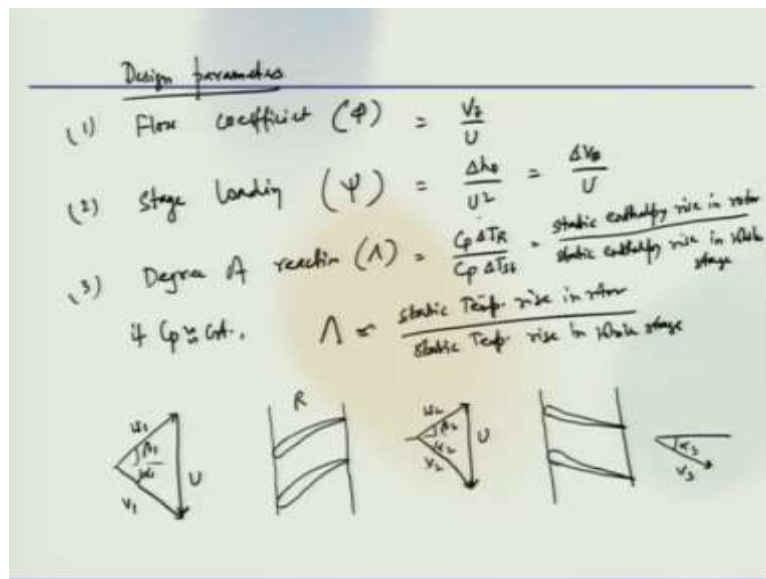 Design parameters
(1) Flow coefficient (φ) = V_z / U
(2) Stage Loading (Ψ) = Δh₀ / U² = ΔV_θ / U
(3) Degree of reaction (Λ) = Cp ΔT_R / Cp ΔT_st = static enthalpy rise in rotor / static enthalpy rise in whole stage
if Cp ≈ Cst., Λ = static Temp. rise in rotor / static Temp. rise in whole stage
R
W₁ β₁ α₁ V₁ U
W₂ β₂ α₂ V₂ U
α₃ V₃